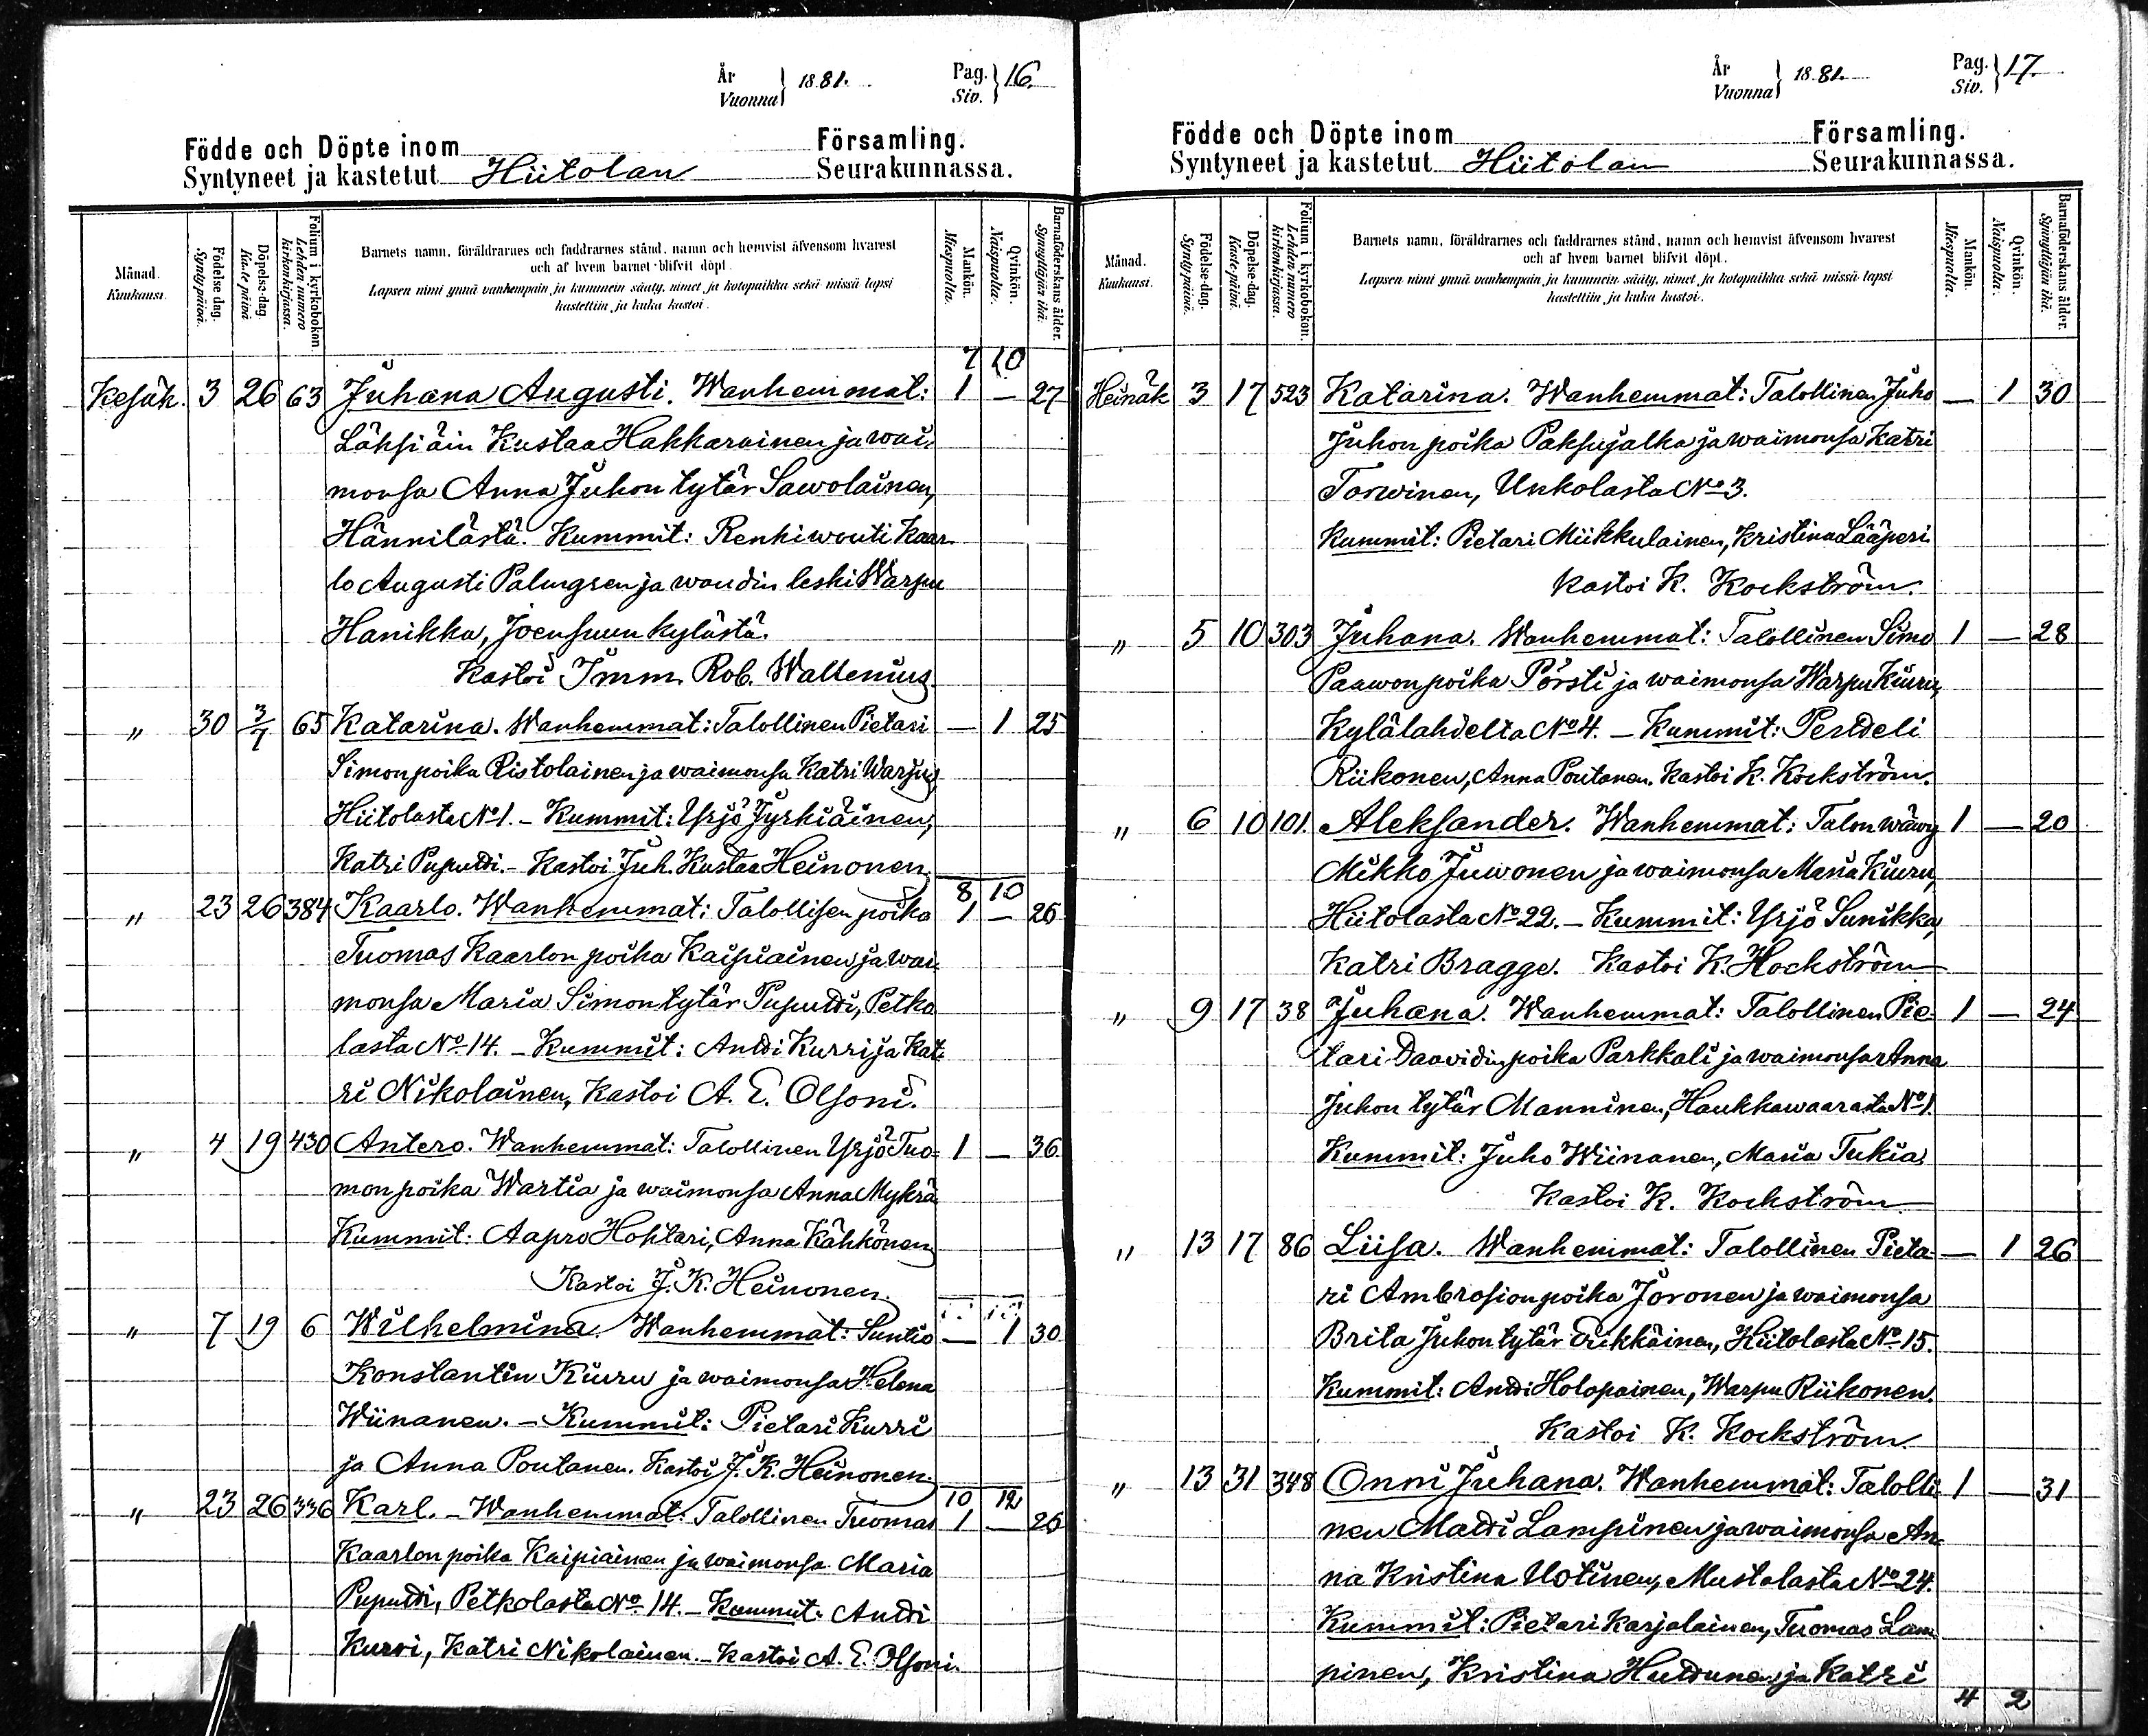 År
Vuonna } 1881. Pag.
Siv. } 16.
Födde och Döpte inom Församling.
Syntyneet ja kastetut Hiitolan Seurakunnassa.
Månad.
Kuukausi.
Födelse dag.
Synty päivä.
Döpelse-dag.
Kaste päivä.
Folium i kyrkobokon.
Lehden numero
kirkonkirjassa.
Barnets namn, föräldrarnes och faddrarnes stånd, namn och hemvist äfvensom hvarest
och af hvem barnet blifvit döpt.
Lapsen nimi ynnä vanhempain ja kummein sääty, nimet ja kotopaikka sekä missä lapsi
kastettiin ja kuka kastoi.
Mankön.
Miespuolta.
Qvinkön.
Naispuolta.
Barnaföderskans ålder.
Synnyttäjän ikä.
7 10
Kesäk. 3 26 63 Juhana Augusti. Wanhemmat: 1 — 27
Lähsiäin Kustaa Hakkarainen ja wai-
monsa Anna Juhon tytär Sawolainen,
Hännilästä. Kummit: Renkiwouti Kaar-
lo Augusti Palmgren ja woudin leski Warpu
Hanikka, Joensuun kylästä.
Kastoi Imm. Rob. Wallenius
" 30 3/7 65 Katarina. Wanhemmat: Talollinen Pietari — 1 25
Simonpoika Ristolainen ja waimonsa Katri Warpus,
Hiitolasta No 1. – Kummit: Yrjö Jyrkiäinen,
Katri Puputti. – Kastoi Juh. Kustaa Heinonen.
8 10
" 23 26 384 Kaarlo. Wanhemmat: Talollisen poika 1 — 26
Tuomas Kaarlon poika Kaipiainen ja wai-
monsa Maria Simontytär Puputti, Petko
lasta No 14. – Kummit: Antti Kurri ja Kat-
ri Nikolainen, Kastoi A. E. Olsoni.
" 4 19 430 Antero. Wanhemmat: Talollinen Yrjö Tuo- 1 — 36
monpoika Wartia ja waimonsa Anna Mykrä
Kummit: Aapro Hohtari, Anna Kähkönen
Kastoi J. K. Heinonen.
" 7 19 6 Wilhelmina. Wanhemmat: Suntio — 1 30
Konstantin Kiuru ja waimonsa Helena
Wiinanen. – Kummit: Pietari Kurri
ja Anna Poutanen. Kastoi J. K. Heinonen.
10 12
" 23 26 336 Karl. – Wanhemmat: Talollinen Tuomas 1 — 26
Kaarlon poika Kaipiainen ja waimonsa Maria
Puputti, Petkolasta No 14. – Kummit: Antti
Kurvi, Katri Nikolainen. – Kastoi A. E. Olsoni.
År
Vuonna } 1881. Pag.
Siv. } 17.
Födde och Döpte inom Församling.
Syntyneet ja kastetut Hiitolan Seurakunnassa.
Månad.
Kuukausi.
Födelse-dag.
Synty-päivä.
Döpelse-dag.
Kaste-päivä.
Folium i kyrkobokon.
Lehden numero
kirkonkirjassa.
Barnets namn, föräldrarnes och faddrarnes stånd, namn och hemvist äfvensom hvarest
och af hvem barnet blifvit döpt.
Lapsen nimi ynnä vanhempain ja kummein sääty, nimet ja kotopaikka sekä missä lapsi
kastettiin ja kuka kastoi.
Mankön.
Miespuolta.
Qvinkön.
Naispuolta.
Barnaföderskans ålder.
Synnyttäjän ikä.
Heinäk 3 17 523 Katarina. Wanhemmat: Talollinen Juho — 1 30
Juhon poika Paksujalka ja waimonsa Katri
Torwinen, Ukkolasta No 3.
Kummit: Pietari Miikkulainen, Kristina Lääperi
Kastoi K. Kockström.
" 5 10 303 Juhana. Wanhemmat: Talollinen Simo 1 — 28
Paawonpoika Pörsti ja waimonsa Warpu Kiuru,
Kylälahdelta No 4. – Kummit: Pertteli
Riikonen, Anna Poutanen. Kastoi K. Kockström.
" 6 10 101. Aleksander. Wanhemmat: Talon wäwy 1 — 20
Mikko Juwonen ja waimonsa Maria Kiuru,
Hiitolasta No 22. – Kummit: Yrjö Sunikka,
Katri Bragge. Kastoi K. Kockström
" 9 17 38 Juhana. Wanhemmat: Talollinen Pie- 1 — 24
tari Daavidinpoika Parkkali ja waimonsa Anna
Juhon tytär Manninen, Haukkawaarasta No 1.
Kummit: Juho Wiinanen, Maria Tukia
Kastoi K. Kockström.
" 13 17 86 Liisa. Wanhemmat: Talollinen Pieta- — 1 26
ri Ambrosionpoika Joronen ja waimonsa
Brita Juhontytär Eikkäinen, Hiitolasta No 15.
Kummit: Antti Holopainen, Warpu Riikonen.
Kastoi K. Kockström.
" 13 31 348 Onni Juhana. Wanhemmat: Talolli- 1 — 31
nen Matti Lampinen ja waimonsa An-
na Kristina Uotinen, Mustolasta No 24.
Kummit: Pietari Karjalainen, Tuomas Lam-
pinen, Kristina Huttunen ja Katri
4 2